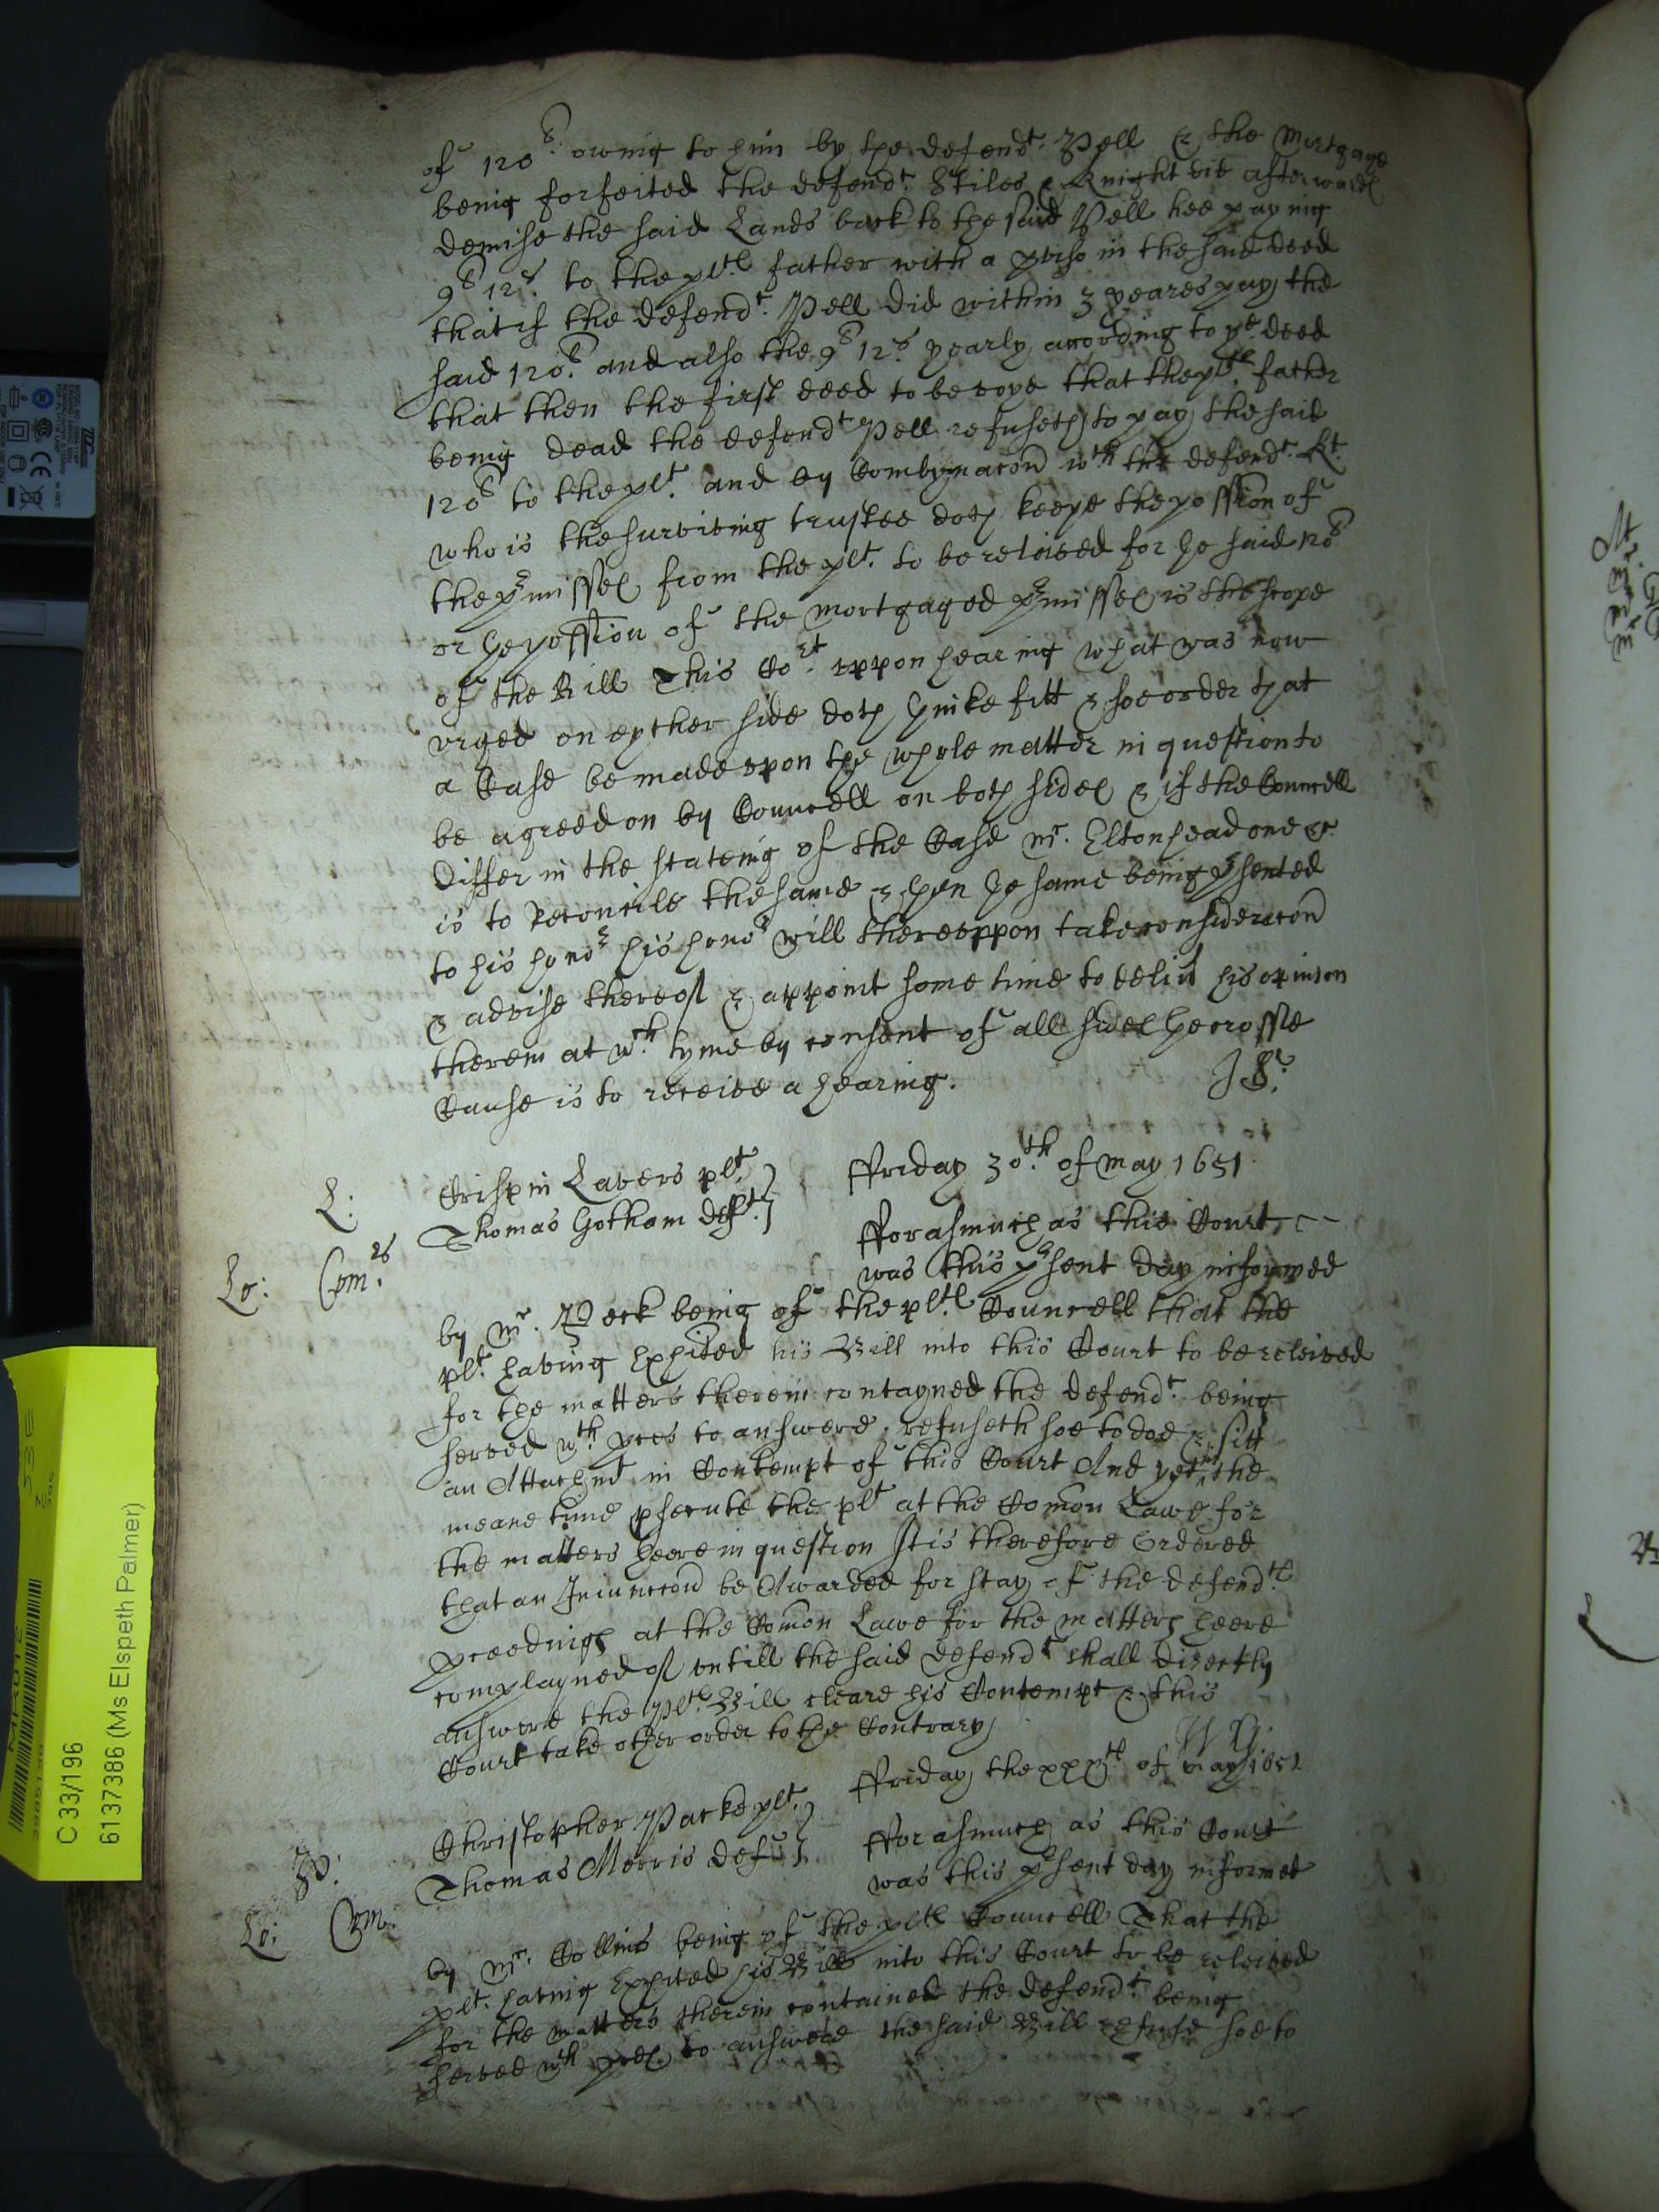 of 120l. oweing to him by the defendt. Pell & the Mortgage
being forfeited the defendt. Stiles & Knight did afterwards
demise the said Lands back to the said Pell hee paying
9l 12s. to the plts. father with a pviso in the said deed
that if the defendt. Pell did within 3 yeares pay the
said 120l. and also the 9l 12s. yearly according to ye deed
that then the first deed to be voyd that the plts. father
being dead the defendt Pell refuseth to pay the said
120l to the plt. and by Combynacon wth the defendt. Kt.
who is the surviving trustee doth keepe the possion of
the pmisses from the plt. to be releived for the said 120l
or the possion of the mortgaged pmisses is the scope
of the Bill This Cort. uppon hearing what was now
urged on eyther side doth thinke fitt & soe order that
a Case be made upon the whole matter in question to
be agreed on by Councell on both sides & if the Councell
differ in the stateing of the Case Mr. Eltonhead one &c
is to Reconcile the same & then the same being psented
to his honor his honor will thereuppon take consideracon
& advise thereof & appoint some time to deliver his opinion
therein at wch. tyme by consent of all sides the crosse
Cause is to receive a hearing.
J S:
L:
Crispin Lavers plt.
Thomas Gotham deft.
ffriday 30th. of May 1651
Lo:
Com: 26
fforasmuch as this Court
was this psent day informed
by Mr. Peck being of the plts. Councell that the
plt. having exhited his Bill into this Court to be releived
for the matters therein contayned the defendt. being
served wth. pces to answere refuseth soe to doe & sitt
an Attachmt in Contempt of this Court And yet in the
meane time psecute the plt at the Comon Lawe for
the matters heere in question It is therefore Ordered
that an Iniunccon be Awarded for stay of the defendts
pceedings at the Comon Lawe for the matters heere
complayned of untill the said defendt shall directly
answere the plts. Bill cleare his Contempt & this
Court take other order to the Contrary
P:
Christopher Parke plt.
Thomas Morris def:
ffriday the xxxth of May 1651
Lo:
Com:
fforasmuch as this Court
was this psent day informed
by Mr. Collins being of the plts Councell That the
plt. having Exhited his Bill into this Court to be releived
for the matters therein contained the defendt. being
served wth pces to answere the said Bill refuse soe to
C 33/196
6137386 (Ms Elspeth Palmer)